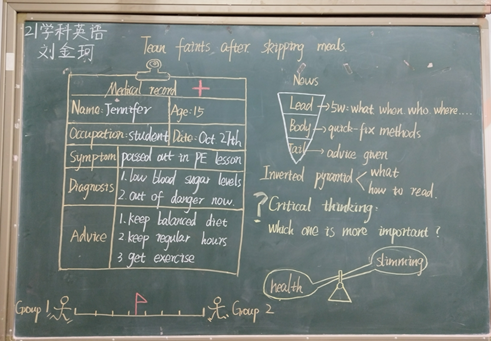 21学科英语
刘金珂
Teen faints, after skipping meals.
Medical record
Name: Jennifer Age: 15
Occupation: student Date: Oct 27th
Symptom passed out in PE lesson
Diagnosis 1. low blood sugar levels
2. out of danger now
Advice 1. keep balanced diet
2 keep regular hours
3 get exercise
News
Lead → 5w: what when who where....
Body → quick-fix methods
Tail → advice given
Inverted pyramid < what
how to read.
? Critical thinking:
which one is more important?
health
slimming
Group 1
Group 2